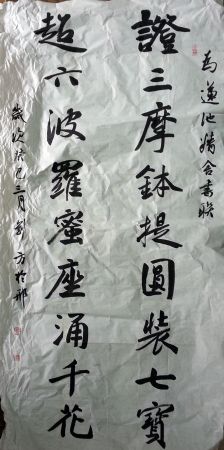 為蓮池精舍書聯
證三摩鉢提圓裝七寶
超六波羅蜜座涌千花
歲次癸巳三月彭方於